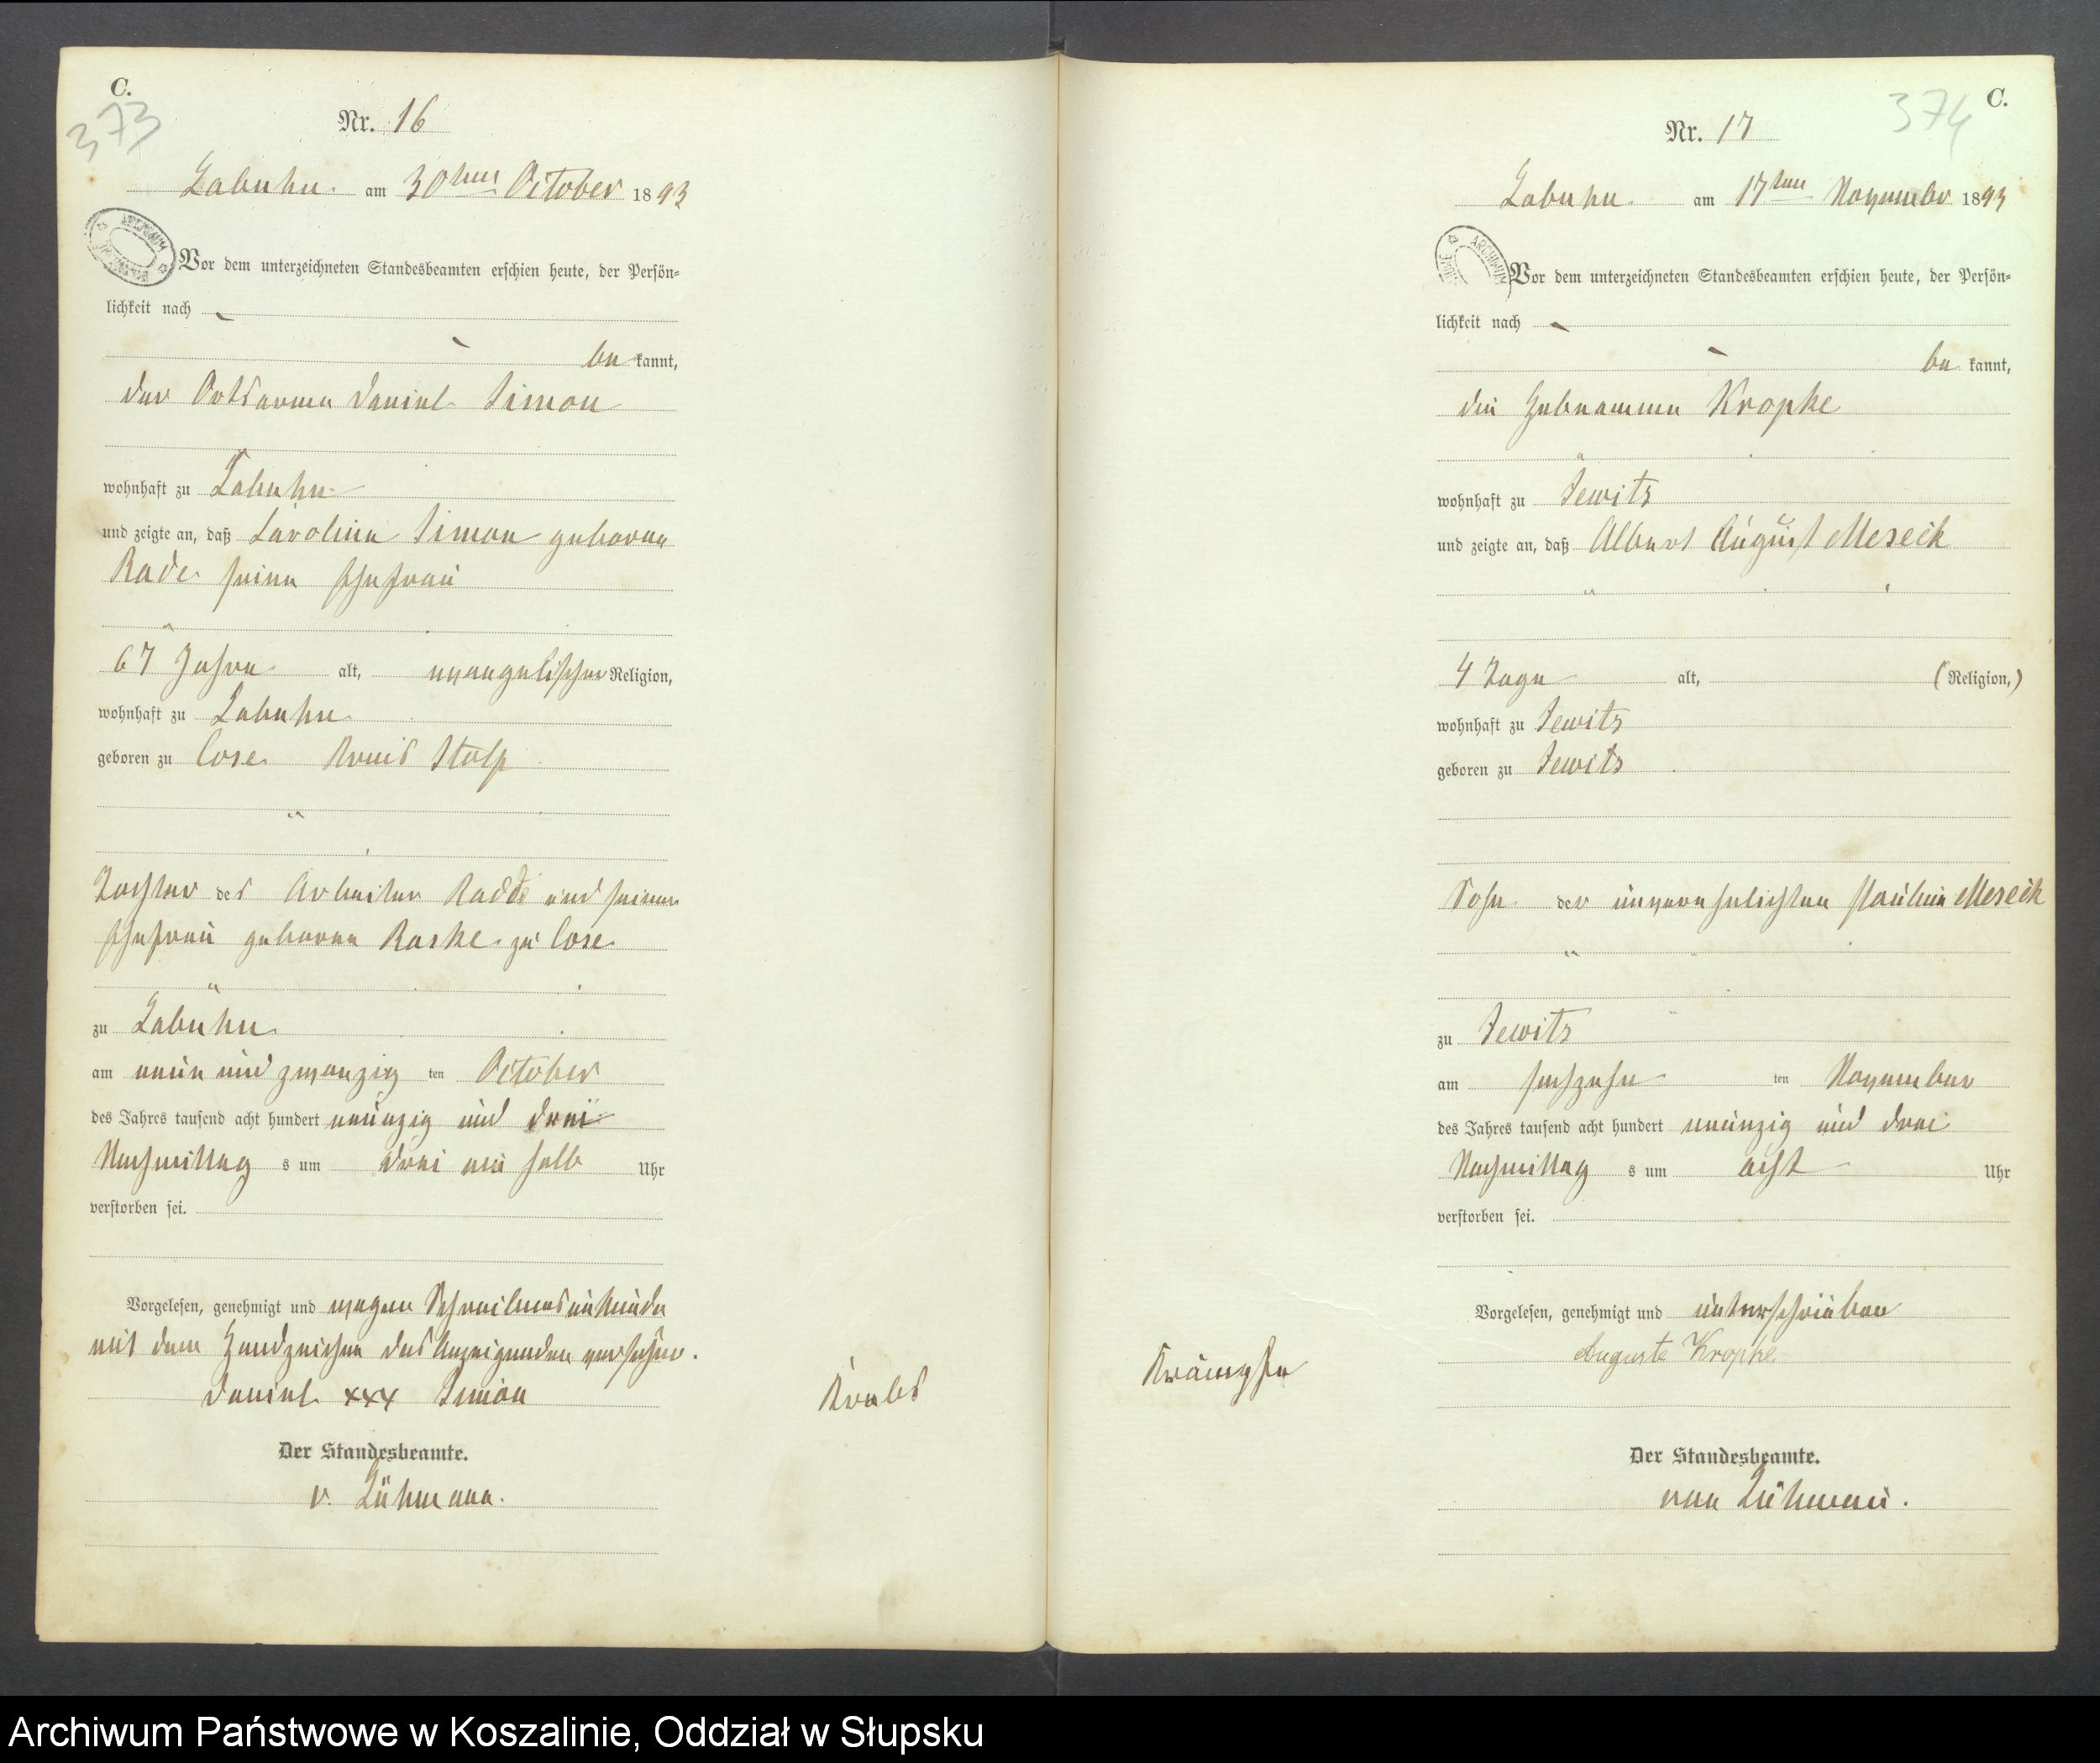 C.
373
Nr. 16
Labuhn am 30ten October 1893
Vor dem unterzeichneten Standesbeamten erschien heute, der Persön-
lichkeit nach
be kannt,
der Ortsarme Daniel Simon
wohnhaft zu Labuhn
und zeigte an, daß Caroline Simon geborene
Rade seine Ehefrau
67 Jahre alt, evangelischer Religion,
wohnhaft zu Labuhn
geboren zu Cose Kreis Stolp
Tochter des Arbeiter Radde und seiner
Ehefrau geborene Raske zu Cose
zu Labuhn
am neun und zwanzig ten October
des Jahres tausend acht hundert neunzig und drei
Nachmittag s um drei ein halb Uhr
verstorben sei.
Vorgelesen, genehmigt und wegen Schreibensunkunde
mit dem Handzeichen des Anzeigenden versehen.
Daniel xxx Simon
Krebs
Der Standesbeamte.
v. Lühmann.
C.
374
Nr. 17
Labuhn am 17ten Novembr 1893
ARCHIWUM
Vor dem unterzeichneten Standesbeamten erschien heute, der Persön-
lichkeit nach
be kannt,
die Hebeamme Kropke
wohnhaft zu Jewitz
und zeigte an, daß Albert August Meseck
4 Tage alt, (Religion,)
wohnhaft zu Jewitz
geboren zu Jewitz
Sohn der unverehelichten Pauline Meseck
zu Jewitz
am sechzehn ten November
des Jahres tausend acht hundert neunzig und drei
Nachmittag s um acht Uhr
verstorben sei.
Vorgelesen, genehmigt und unterschrieben
Auguste Kropke
Krämpfe
Der Standesbeamte.
von Lühmann.
Archiwum Państwowe w Koszalinie, Oddział w Słupsku